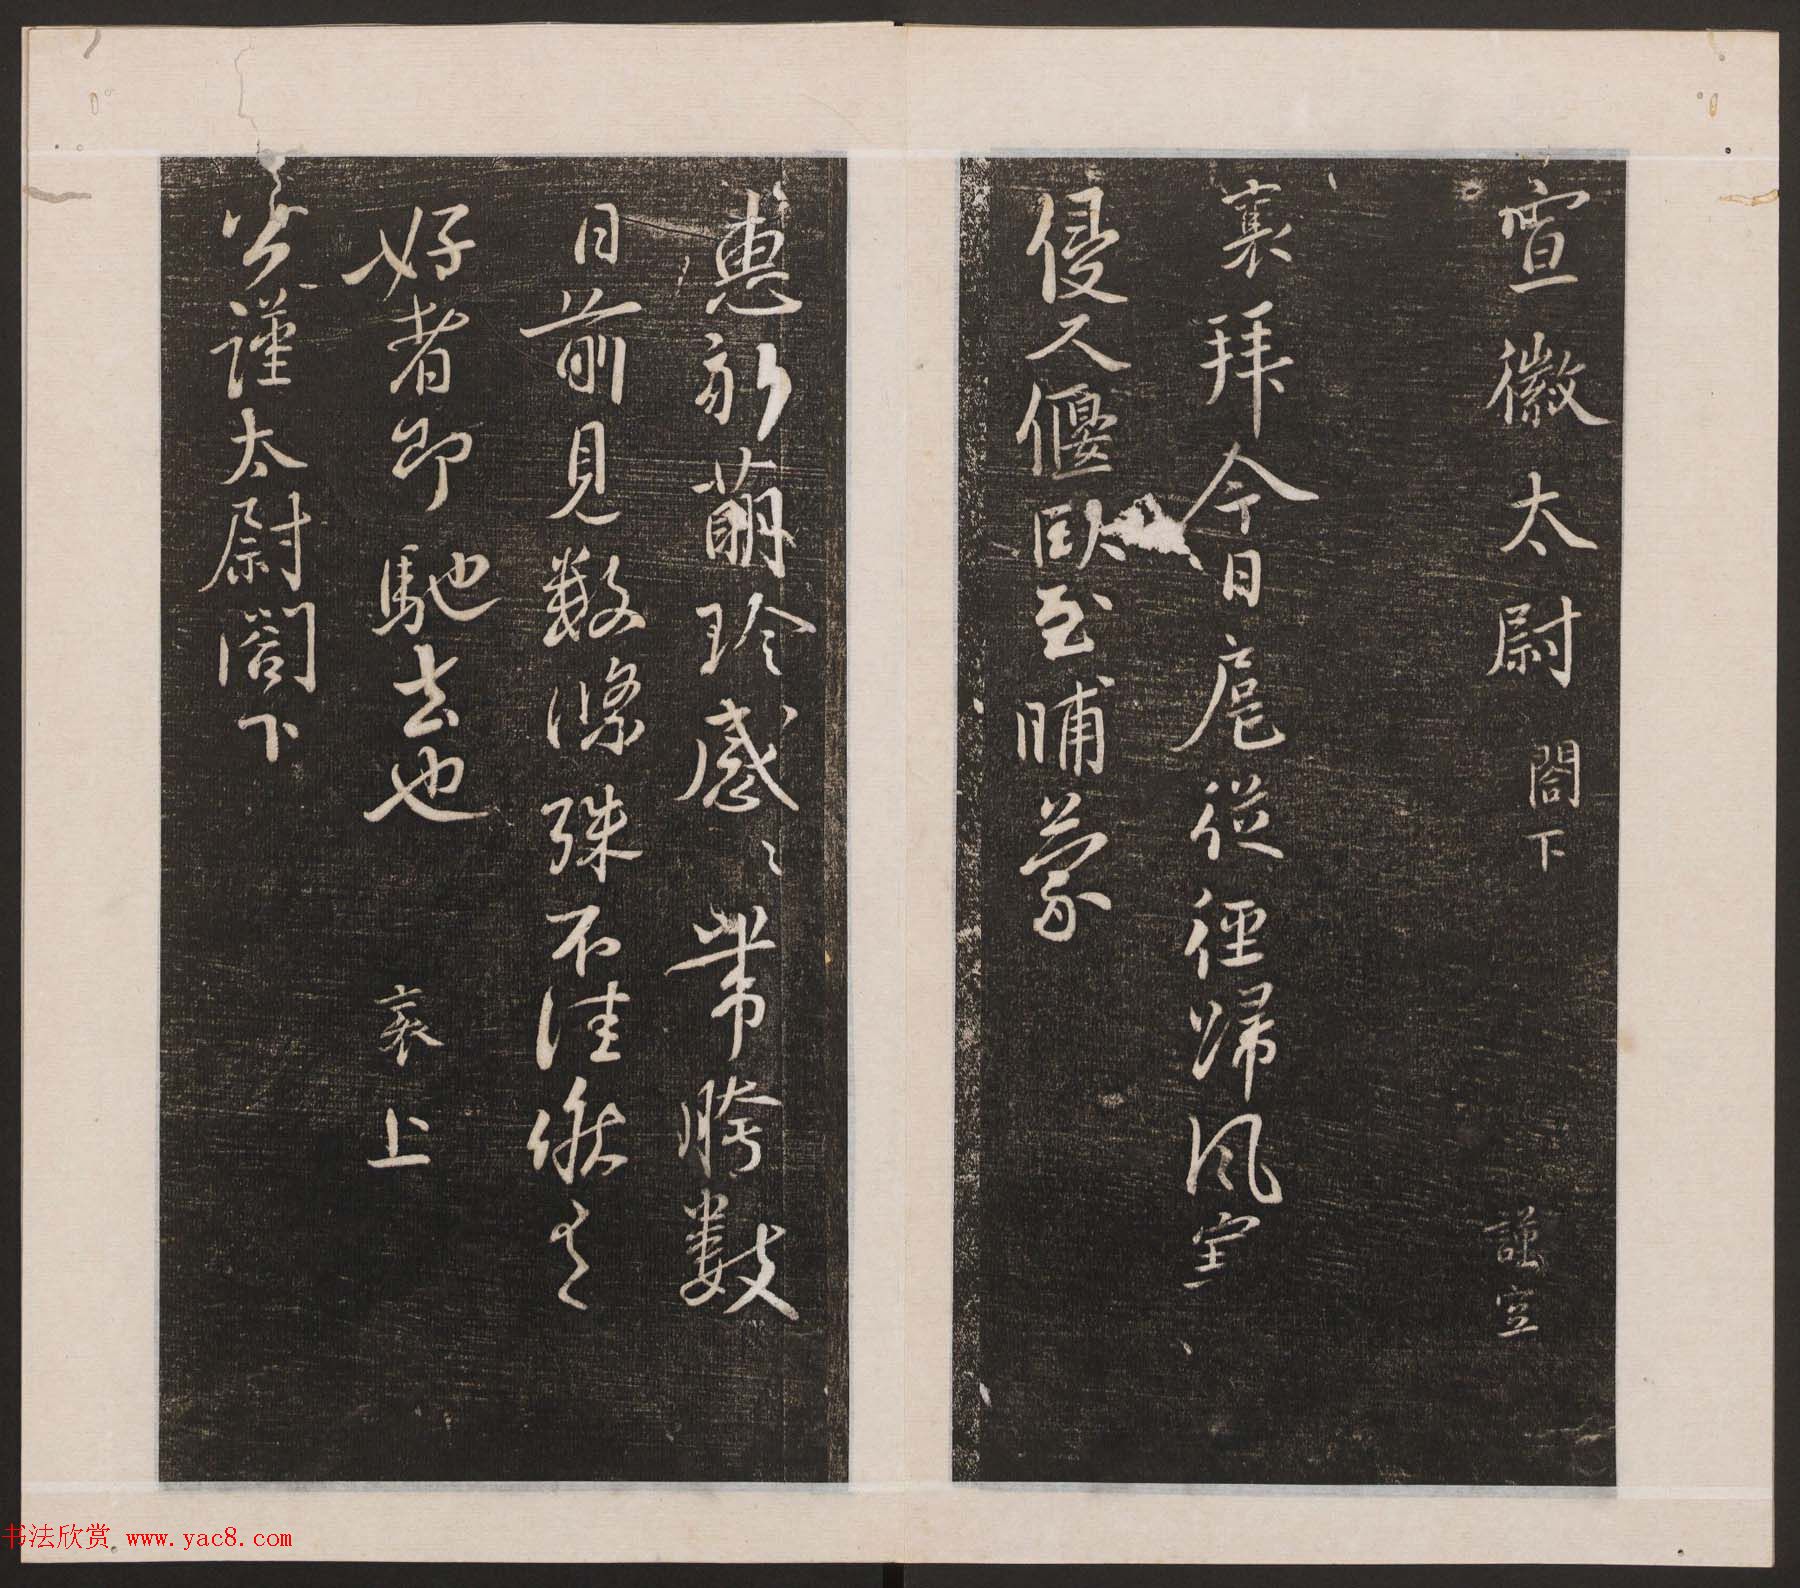 宣徽太尉閤下 謹空
襄拜今日扈從徑歸風寒
侵人偃臥至晡蒙
惠新萌珍感〻帶胯數
日前見數條殊不佳候有
好者即馳去也 襄上
公謹太尉閤下
书法欣赏 www.yac8.com